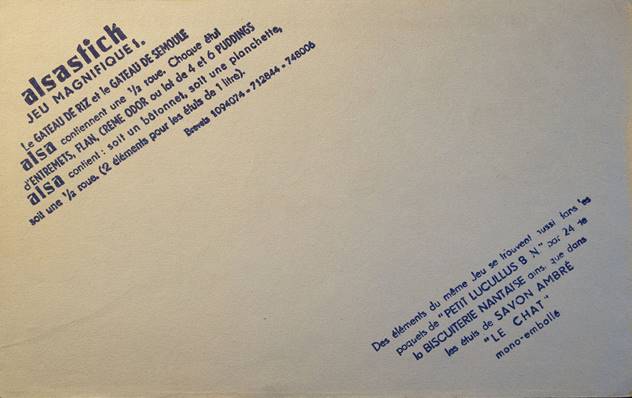 alsastick
JEU MAGNIFIQUE !.
Le GATEAU DE RIZ et le GATEAU DE SEMOULE
alsa contiennent une ½ roue. Chaque étui
d'ENTREMETS, FLAN, CREME ODOR ou lot de 4 et 6 PUDDINGS
alsa contient : soit un bâtonnet, soit une planchette,
soit une ½ roue. (2 éléments pour les étuis de 1 litre).
Brevets 1094074 - 712844 - 748006
Des éléments du même Jeu se trouvent aussi dans les
paquets de "PETIT LUCULLUS B N." par 24 de
la BISCUITERIE NANTAISE ainsi que dans
les étuis de SAVON AMBRÉ
"LE CHAT"
mono-emballé